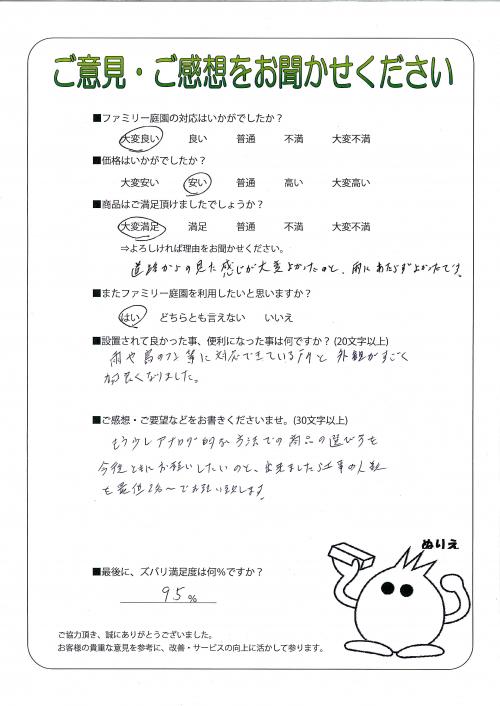 ご意見・ご感想をお聞かせください
■ファミリー庭園の対応はいかがでしたか？
大変良い 良い 普通 不満 大変不満
■価格はいかがでしたか？
大変安い 安い 普通 高い 大変高い
■商品はご満足頂けましたでしょうか？
大変満足 満足 普通 不満 大変不満
⇒よろしければ理由をお聞かせください。
道路からの見た感じが大変よかったのと、雨にあたらずよかったです。
■またファミリー庭園を利用したいと思いますか？
はい どちらとも言えない いいえ
■設置されて良かった事、便利になった事は何ですか？(20文字以上)
雨や鳥のフン等に対応できている所と 外観がすごく
良くなりました。
■ご感想・ご要望などをお書きくださいませ。(30文字以上)
もう少しアナログ的な方法での商品の選び方を
今後ともにお願いしたいのと、出来ましたら工事の人数
を最低2名〜でお願い致します
ぬりえ
■最後に、ズバリ満足度は何%ですか？
95%
ご協力頂き、誠にありがとうございました。
お客様の貴重な意見を参考に、改善・サービスの向上に活かして参ります。